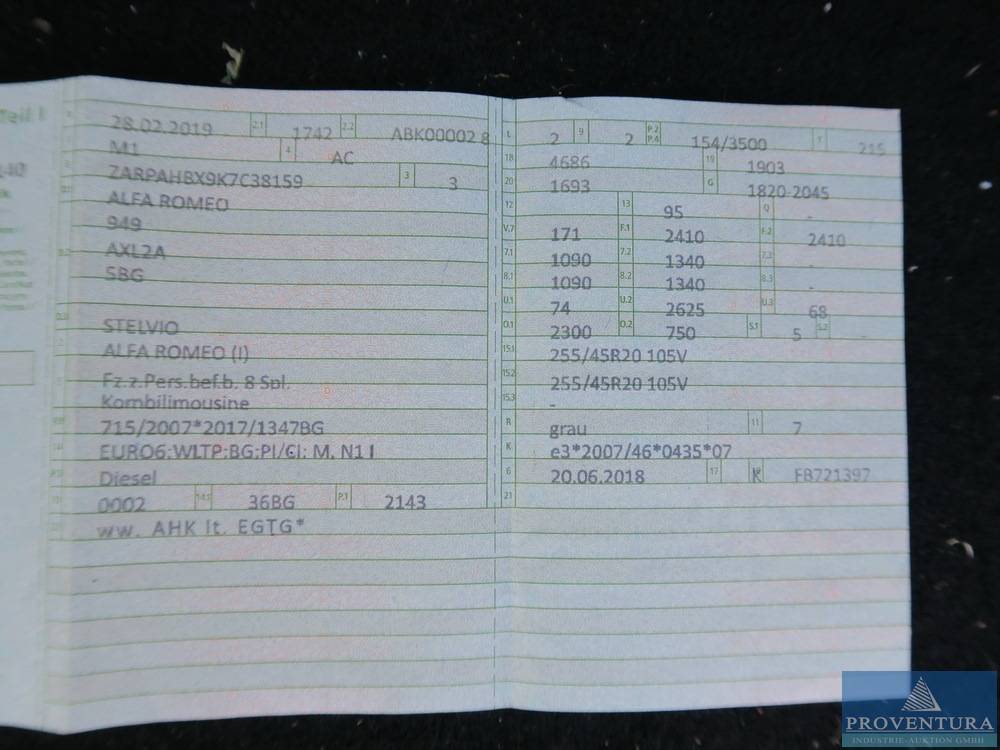 Teil I
28.02.2019 2.1 1742 2.2 ABK00002 8
M1 4 AC
ZARPAHBX9K7C38159 3 3
ALFA ROMEO
949
AXL2A
SBG
STELVIO
ALFA ROMEO (I)
Fz.z.Pers.bef.b. 8 Spl.
Kombilimousine
715/2007*2017/1347BG
EURO6;WLTP;BG;PI/CI; M, N1 I
Diesel
0002 14.1 36BG P.1 2143
ww. AHK lt. EGTG*
L 2 9 2 P.2 P.4 154/3500 T 215
18 4686 19 1903
20 1693 G 1820-2045
12 13 95 Q -
V.7 171 F.1 2410 F.2 2410
7.1 1090 7.2 1340 -
8.1 1090 8.2 1340 8.3 -
U.1 74 U.2 2625 U.3 68
O.1 2300 O.2 750 S.1 5 S.2 -
15.1 255/45R20 105V
15.2 255/45R20 105V
15.3 -
R grau 11 7
K e3*2007/46*0435*07
6 20.06.2018 17 K FB721397
21
PROVENTURA
INDUSTRIE-AUKTION GMBH